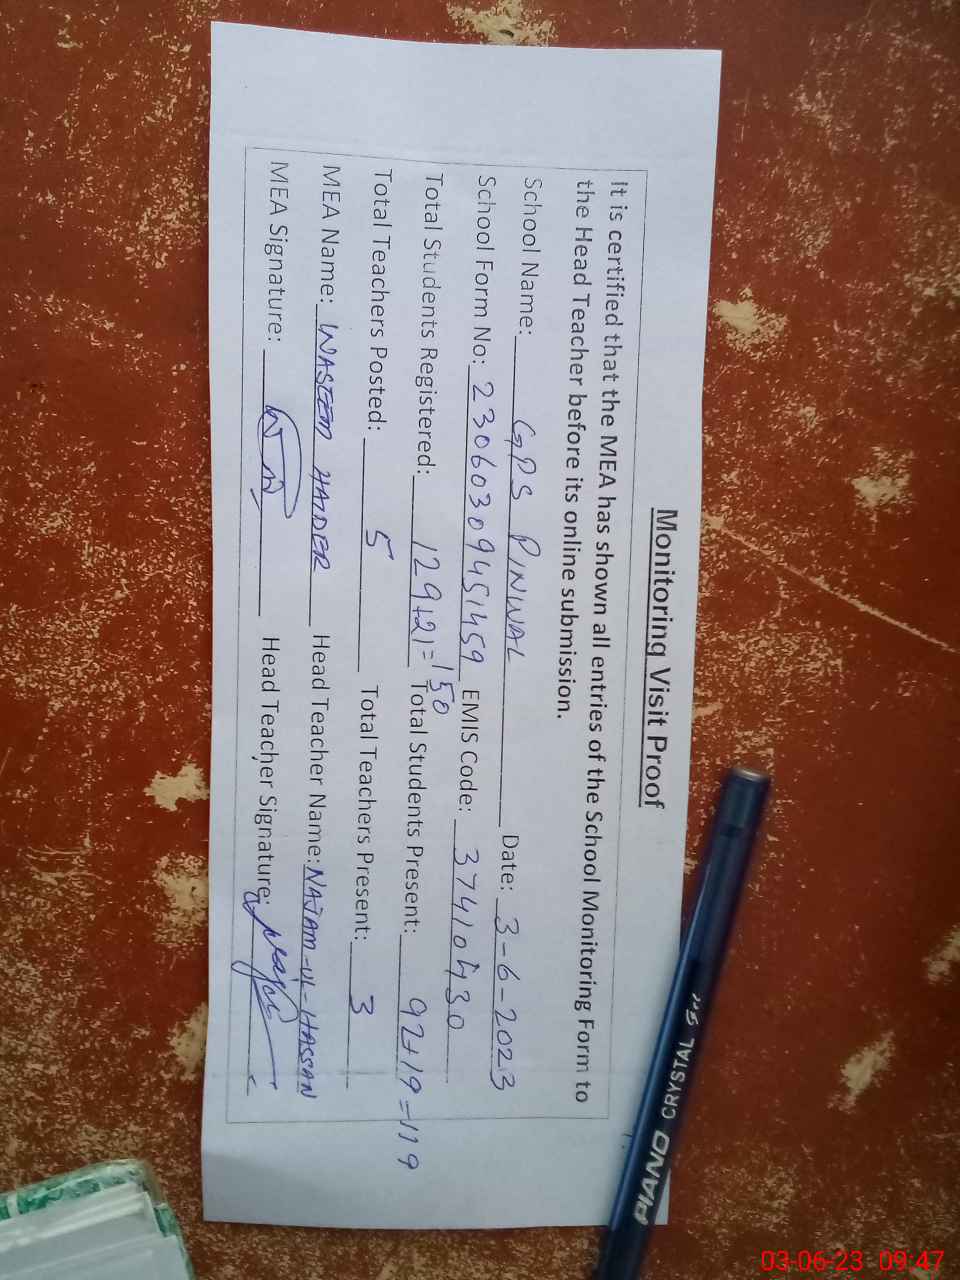 Monitoring Visit Proof
It is certified that the MEA has shown all entries of the School Monitoring Form to
the Head Teacher before its online submission.
School Name: GPS PINWAL Date: 3-6-2023
School Form No: 23060309451459 EMIS Code: 37410430
Total Students Registered: 129+21=150 Total Students Present: 92+19=119
Total Teachers Posted: 5 Total Teachers Present: 3
MEA Name: WASEEM HAIDER Head Teacher Name: NAJAM-UL-HASSAN
MEA Signature: Head Teacher Signature:
PIANO CRYSTAL
03-06-23 09:47